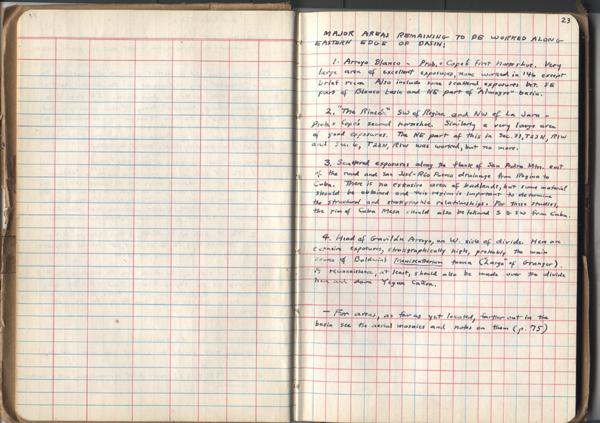 23
MAJOR AREAS REMAINING TO BE WORKED ALONG
EASTERN EDGE OF BASIN:
1. Arroyo Blanco - Prob. = Cope's first horseshoe. Very
large area of excellent exposures, none worked in '46 except
brief recon. Also include some scattered exposures bet. SE
part of Blanco basin and NE part of "Almagre" basin.
2. "The Rincón." SW of Regina and NW of La Jara -
Prob. = Cope's second horseshoe. Similarly a very large area
of good exposures. The NE part of this in Sec. 33, T23N, R1W
and Sec. 6, T22N, R1W was worked, but no more.
3. Scattered exposures along the flank of San Pedro Mtn. east
of the road and San José-Río Puerco drainage from Regina to
Cuba. There is no extensive area of badlands, but some material
should be obtained and this region is important to determine
the structural and stratigraphic relationships. For these studies,
the rim of Cuba Mesa should also be followed S & SW from Cuba.
4. Head of Gavilán Arroyo, on W. side of divide. Here are
extensive exposures, stratigraphically high, probably the main
source of Baldwin's fauna ("Largo" of Granger).
A reconnaissance, at least, should also be made over the divide
here and down Yegua Cañon.
- For areas, as far as yet located, farther out in the
basin see the aerial mosaics and notes on them (p. 75)